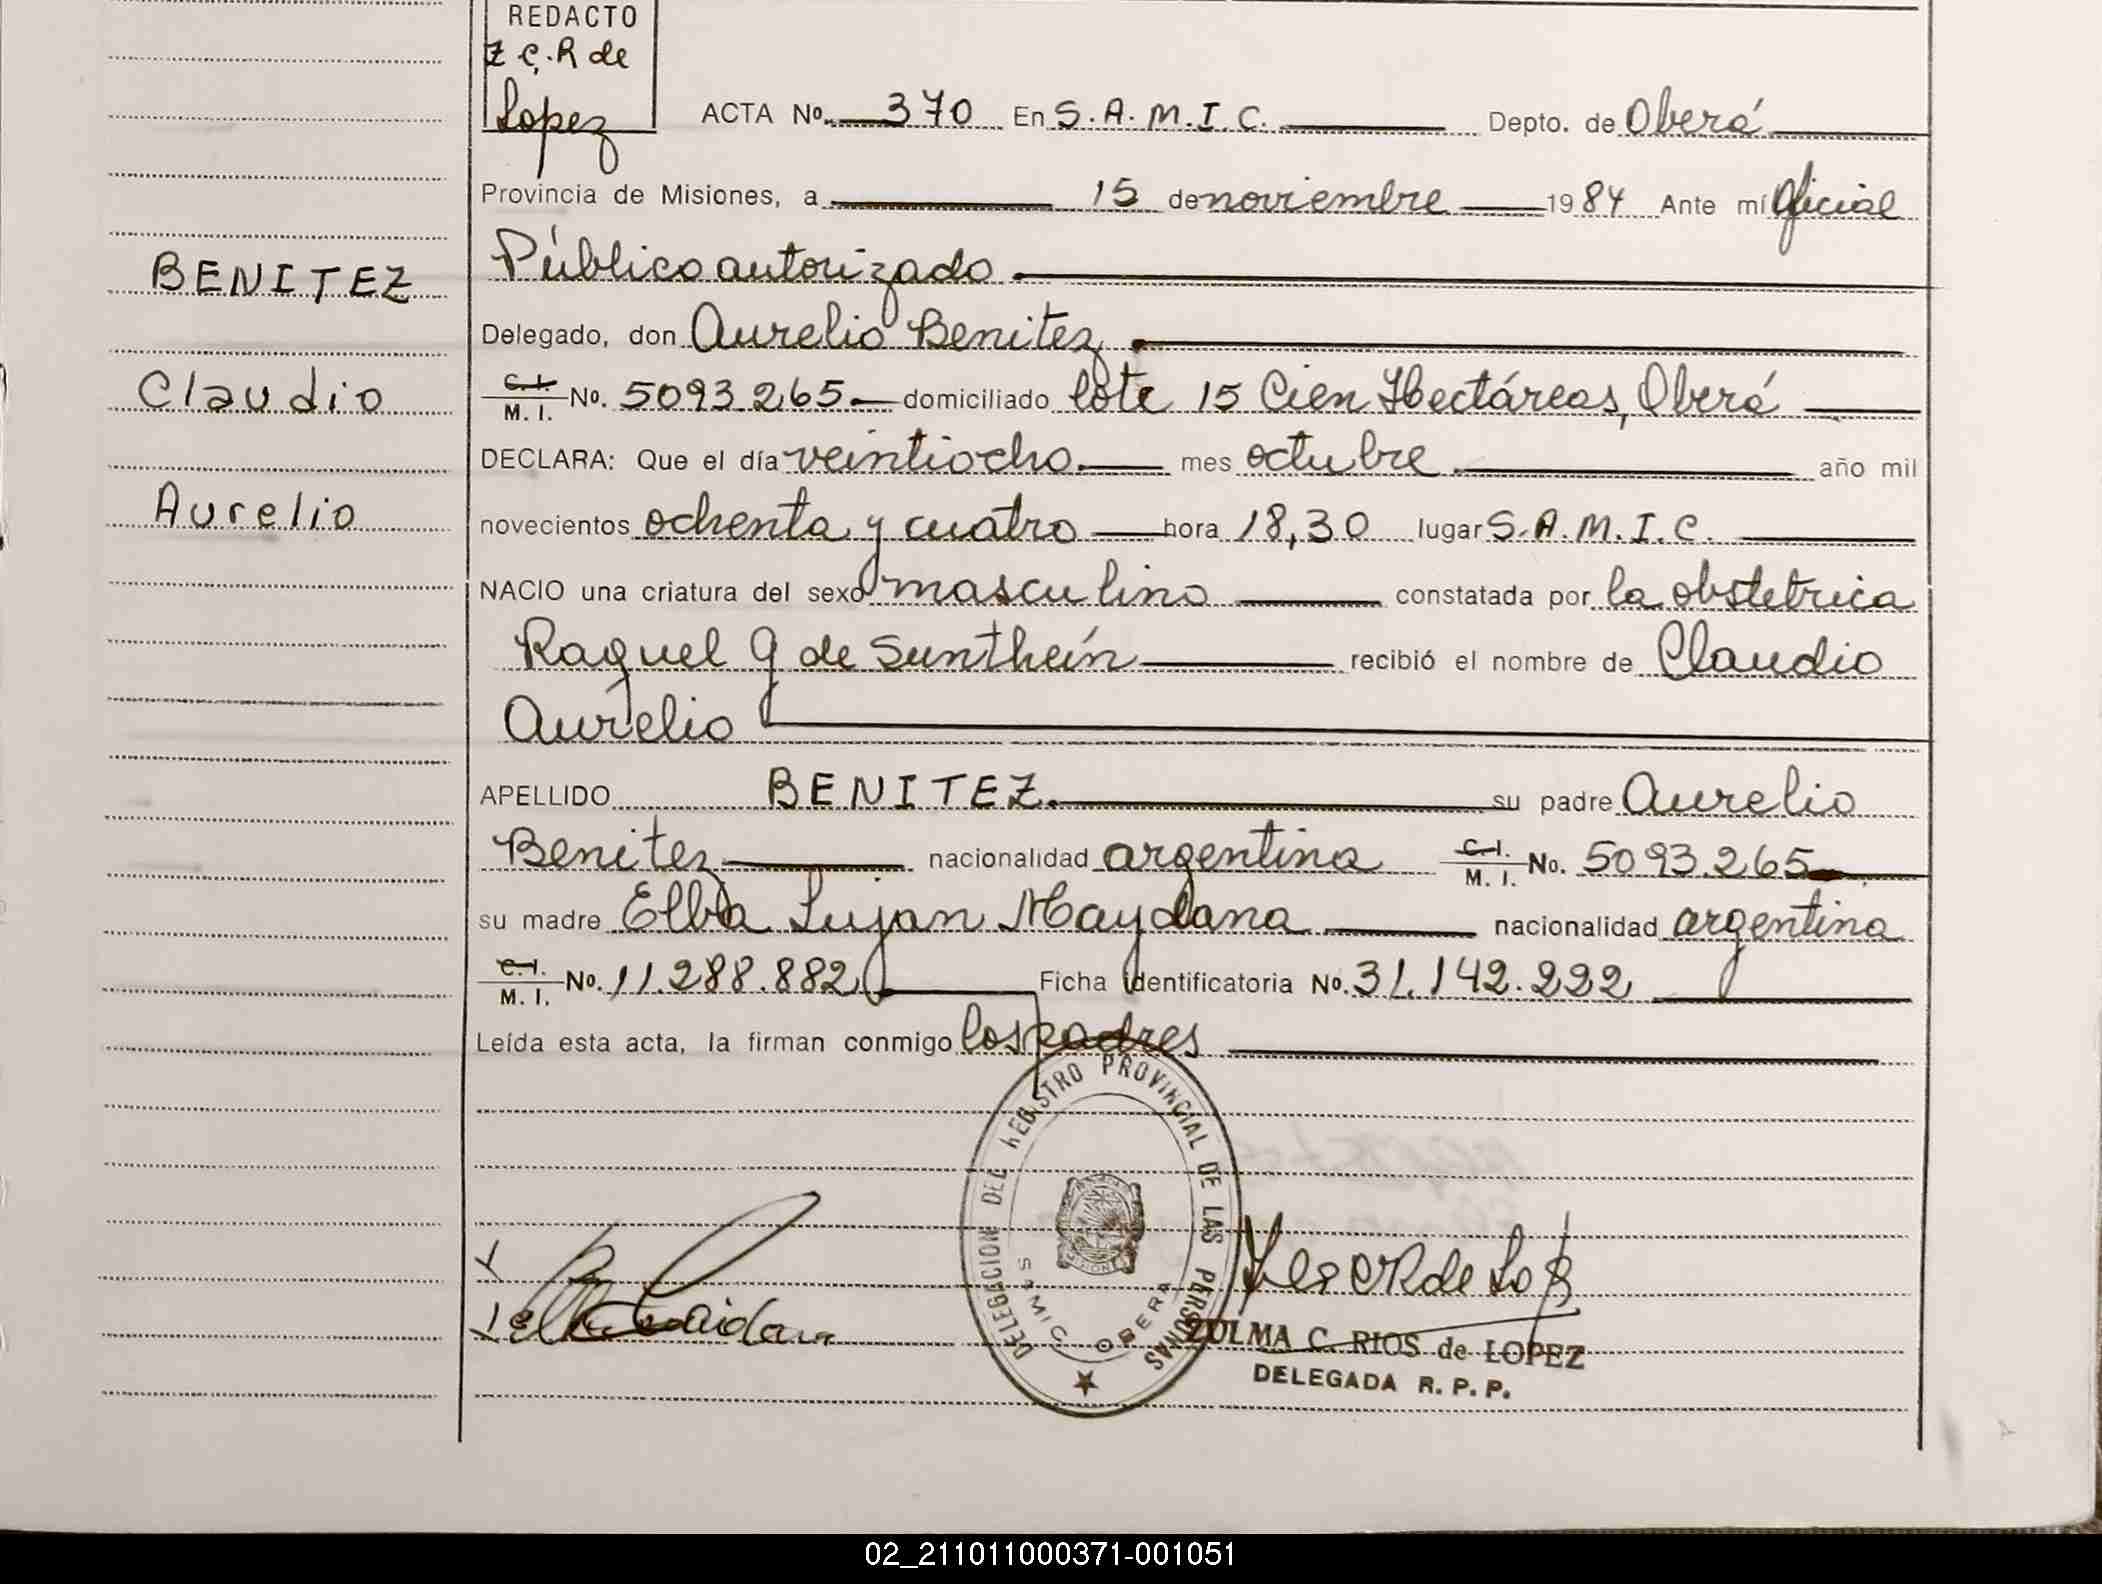 REDACTO
Z C. R de
Lopez
ACTA No. 370 En S. A. M. I. C. Depto. de Oberá
Provincia de Misiones, a 15 de noviembre 1984 Ante mí Oficial
Público autorizado
Delegado, don Aurelio Benitez
C. I. M. I. No. 5093.265 domiciliado lote 15 Cien Hectáreas, Oberá
DECLARA: Que el día veintiocho mes octubre año mil
novecientos ochenta y cuatro hora 18,30 lugar S. A. M. I. C.
NACIO una criatura del sexo masculino constatada por la obstetrica
Raquel G de Sunthein recibió el nombre de Claudio
Aurelio
APELLIDO BENITEZ su padre Aurelio
Benitez nacionalidad argentina C. I. M. I. No. 5093.265
su madre Elba Lujan Maydana nacionalidad argentina
C. I. M. I. No. 11.288.882 Ficha identificatoria No. 31.142.222
Leída esta acta, la firman conmigo los padres
BENITEZ
Claudio
Aurelio
DELEGACION DEL REGISTRO PROVINCIAL DE LAS PERSONAS
SAMIC OBERA
ZULMA C. RIOS de LOPEZ
DELEGADA R. P. P.
02_211011000371-001051